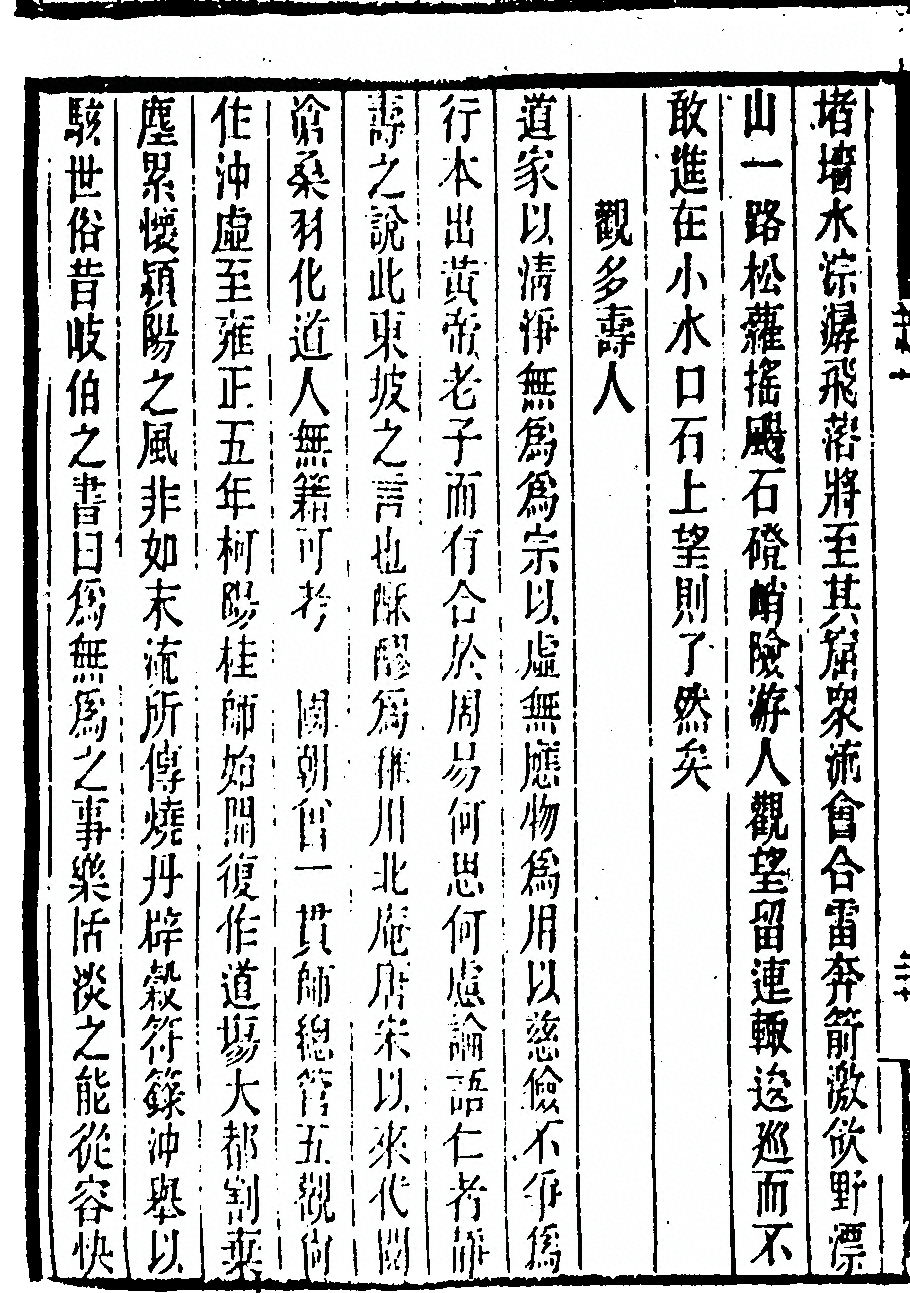 堵墻水淙潺飛落將至其窟眾流會合雷奔箭激欲野漂
山一路松蘿搖颺石磴峭險游人觀望留連輒逡巡而不
敢進在小水口石上望則了然矣
觀多壽人
道家以清淨無為為宗以虛無應物為用以慈儉不爭為
行本出黃帝老子而有合於周易何思何慮論語仁者靜
壽之說此東坡之言也酥醪為稚川北庵唐宋以來代閱
滄桑羽化道人無籍可考 國朝曾一貫師總管五觀何
住沖虛至雍正五年柯陽桂師始開復作道場大都割棄
塵累懷潁陽之風非如末流所傳燒丹辟穀符籙沖舉以
駭世俗昔岐伯之書曰為無為之事樂恬淡之能從容快